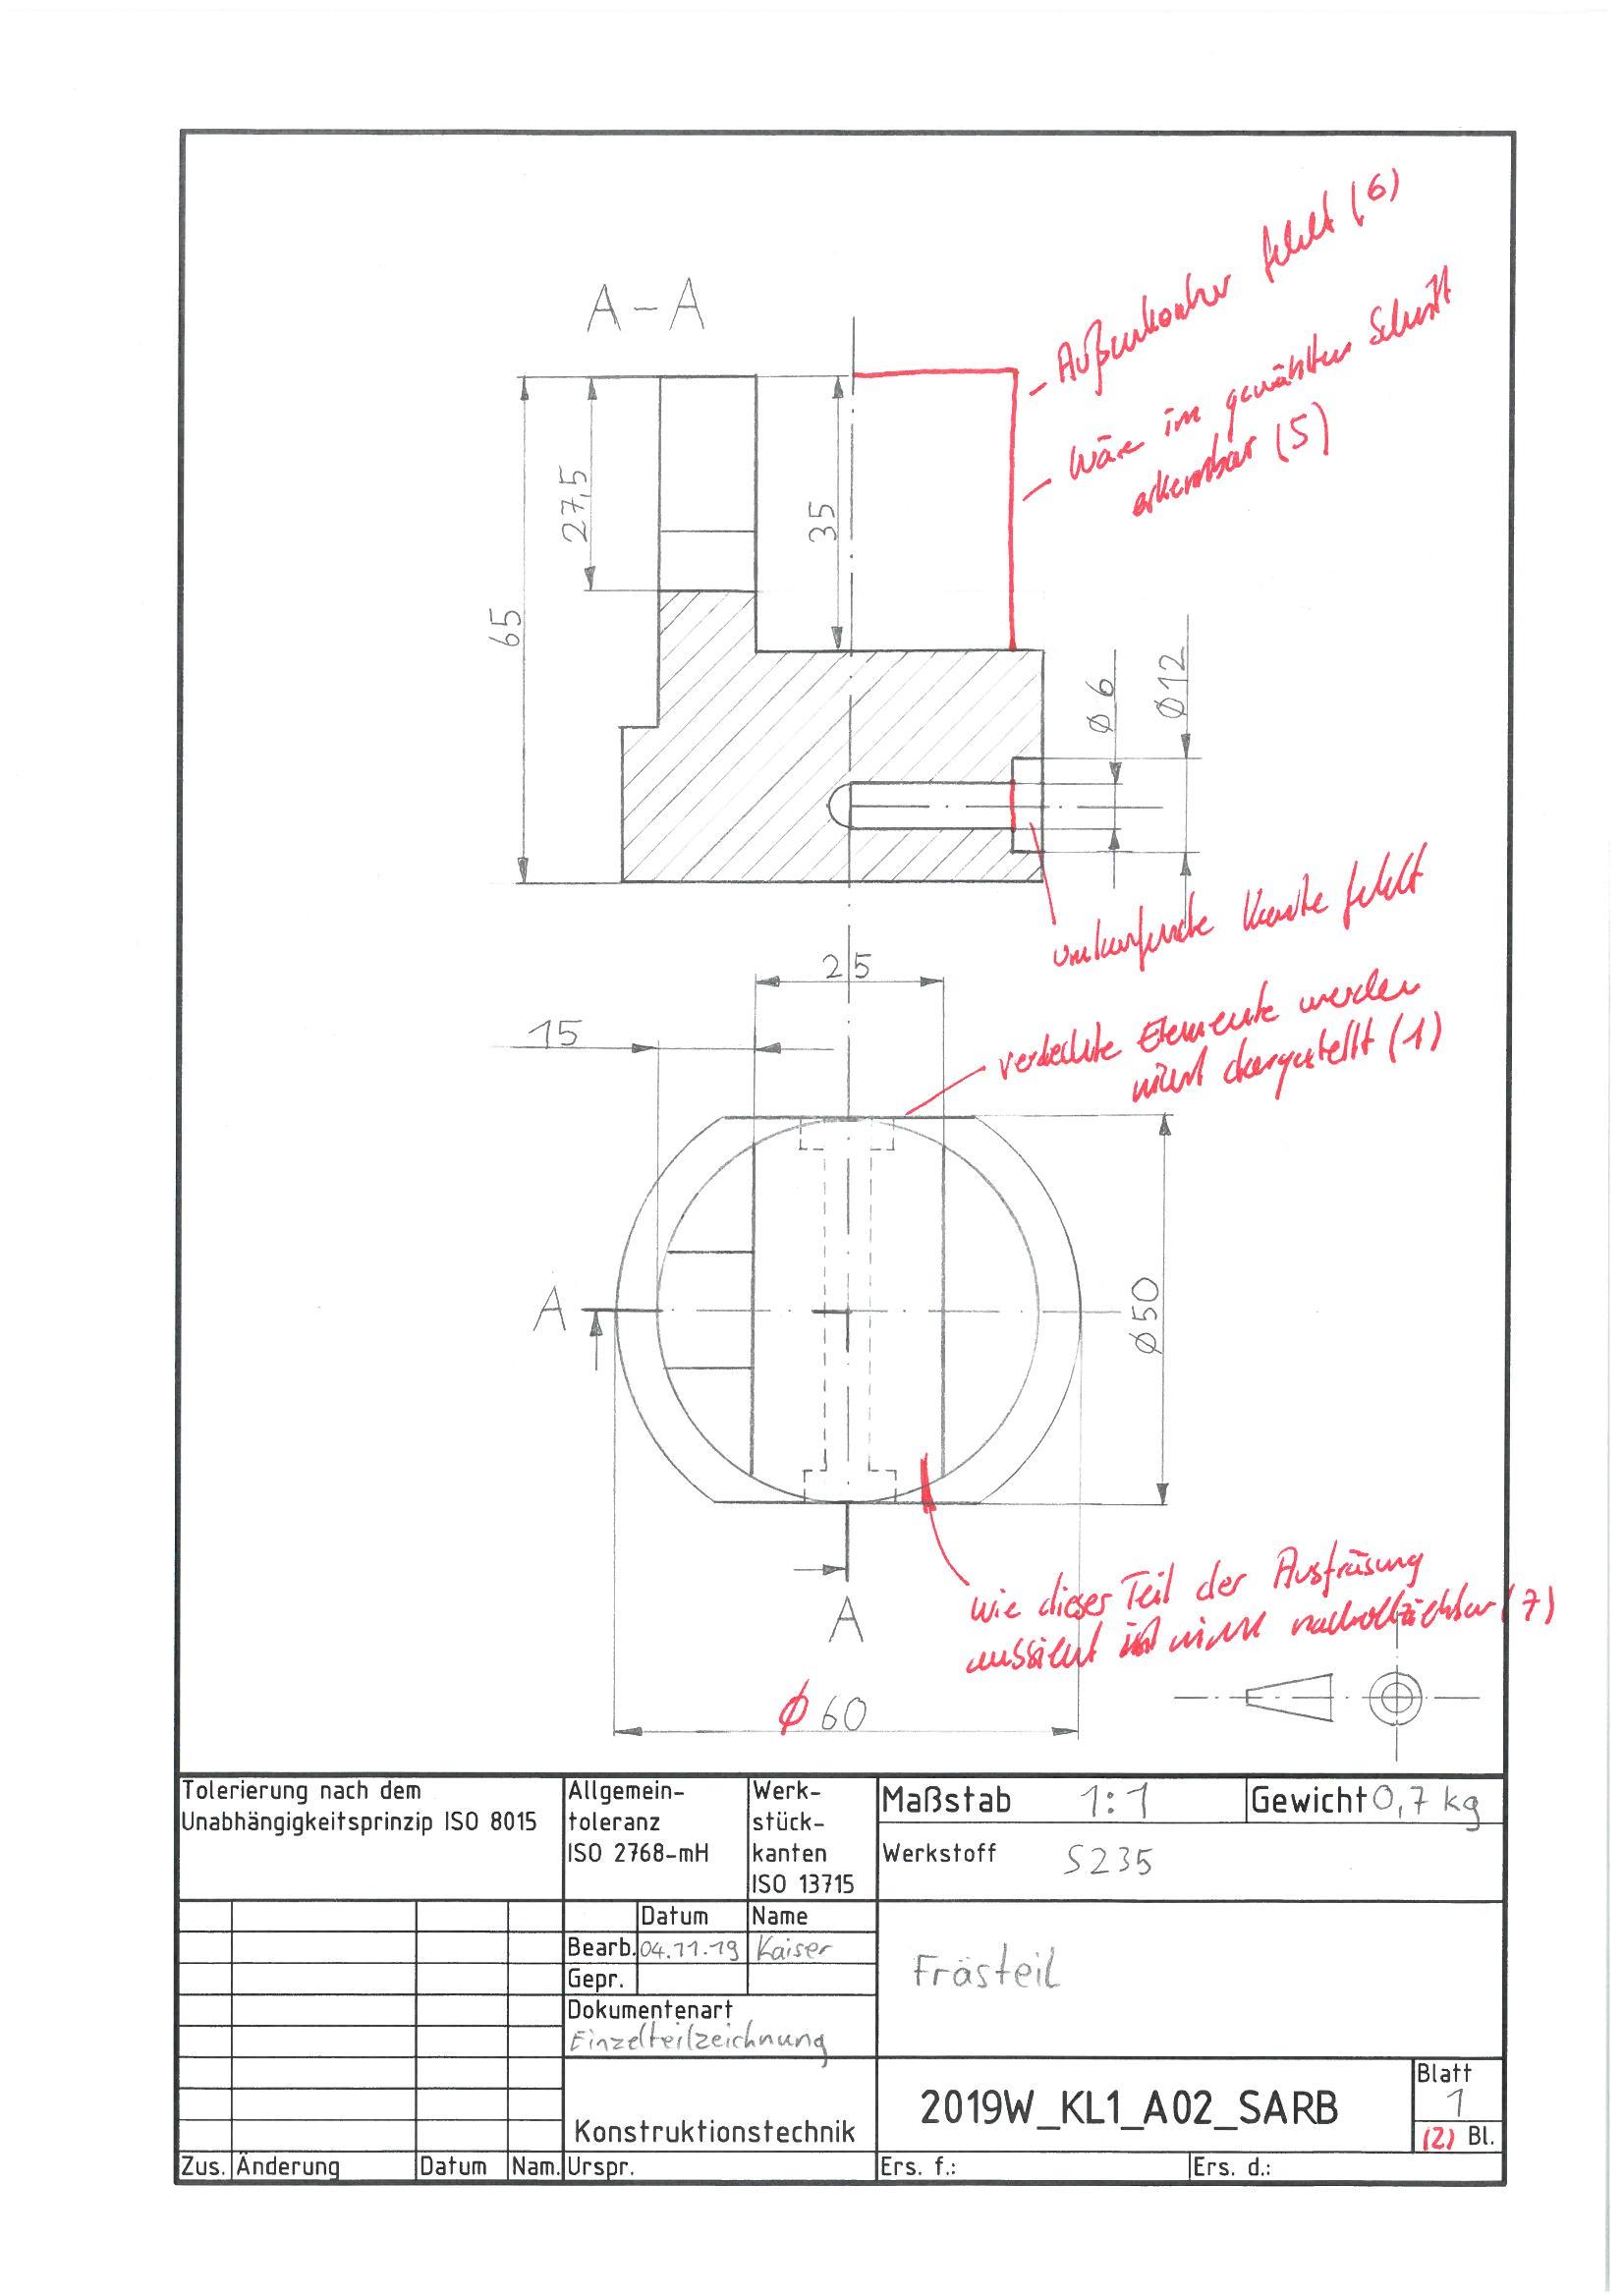 Außenkontur fehlt (6)
A-A
wäre im gewählten Schnitt
erkennbar (5)
27,5
35
65
Ø 6
Ø12
umlaufende Kante fehlt
25
verdeckte Elemente werden
nicht dargestellt (1)
15
A
Ø50
wie dieser Teil der Ausfräsung
aussieht ist nicht nachvollziehbar (7)
A
Ø 60
Tolerierung nach dem
Unabhängigkeitsprinzip ISO 8015
Allgemein-
toleranz
ISO 2768-mH
Werk-
stück-
kanten
ISO 13715
Maßstab 1:1
Gewicht 0,7 kg
Werkstoff S235
Datum Name
Bearb. 04.11.19 Kaiser
Gepr.
Dokumentenart
Einzelteilzeichnung
Frästeil
Konstruktionstechnik
2019W_KL1_A02_SARB
Blatt
1
(2) Bl.
Zus. Änderung Datum Nam. Urspr. Ers. f.: Ers. d.: